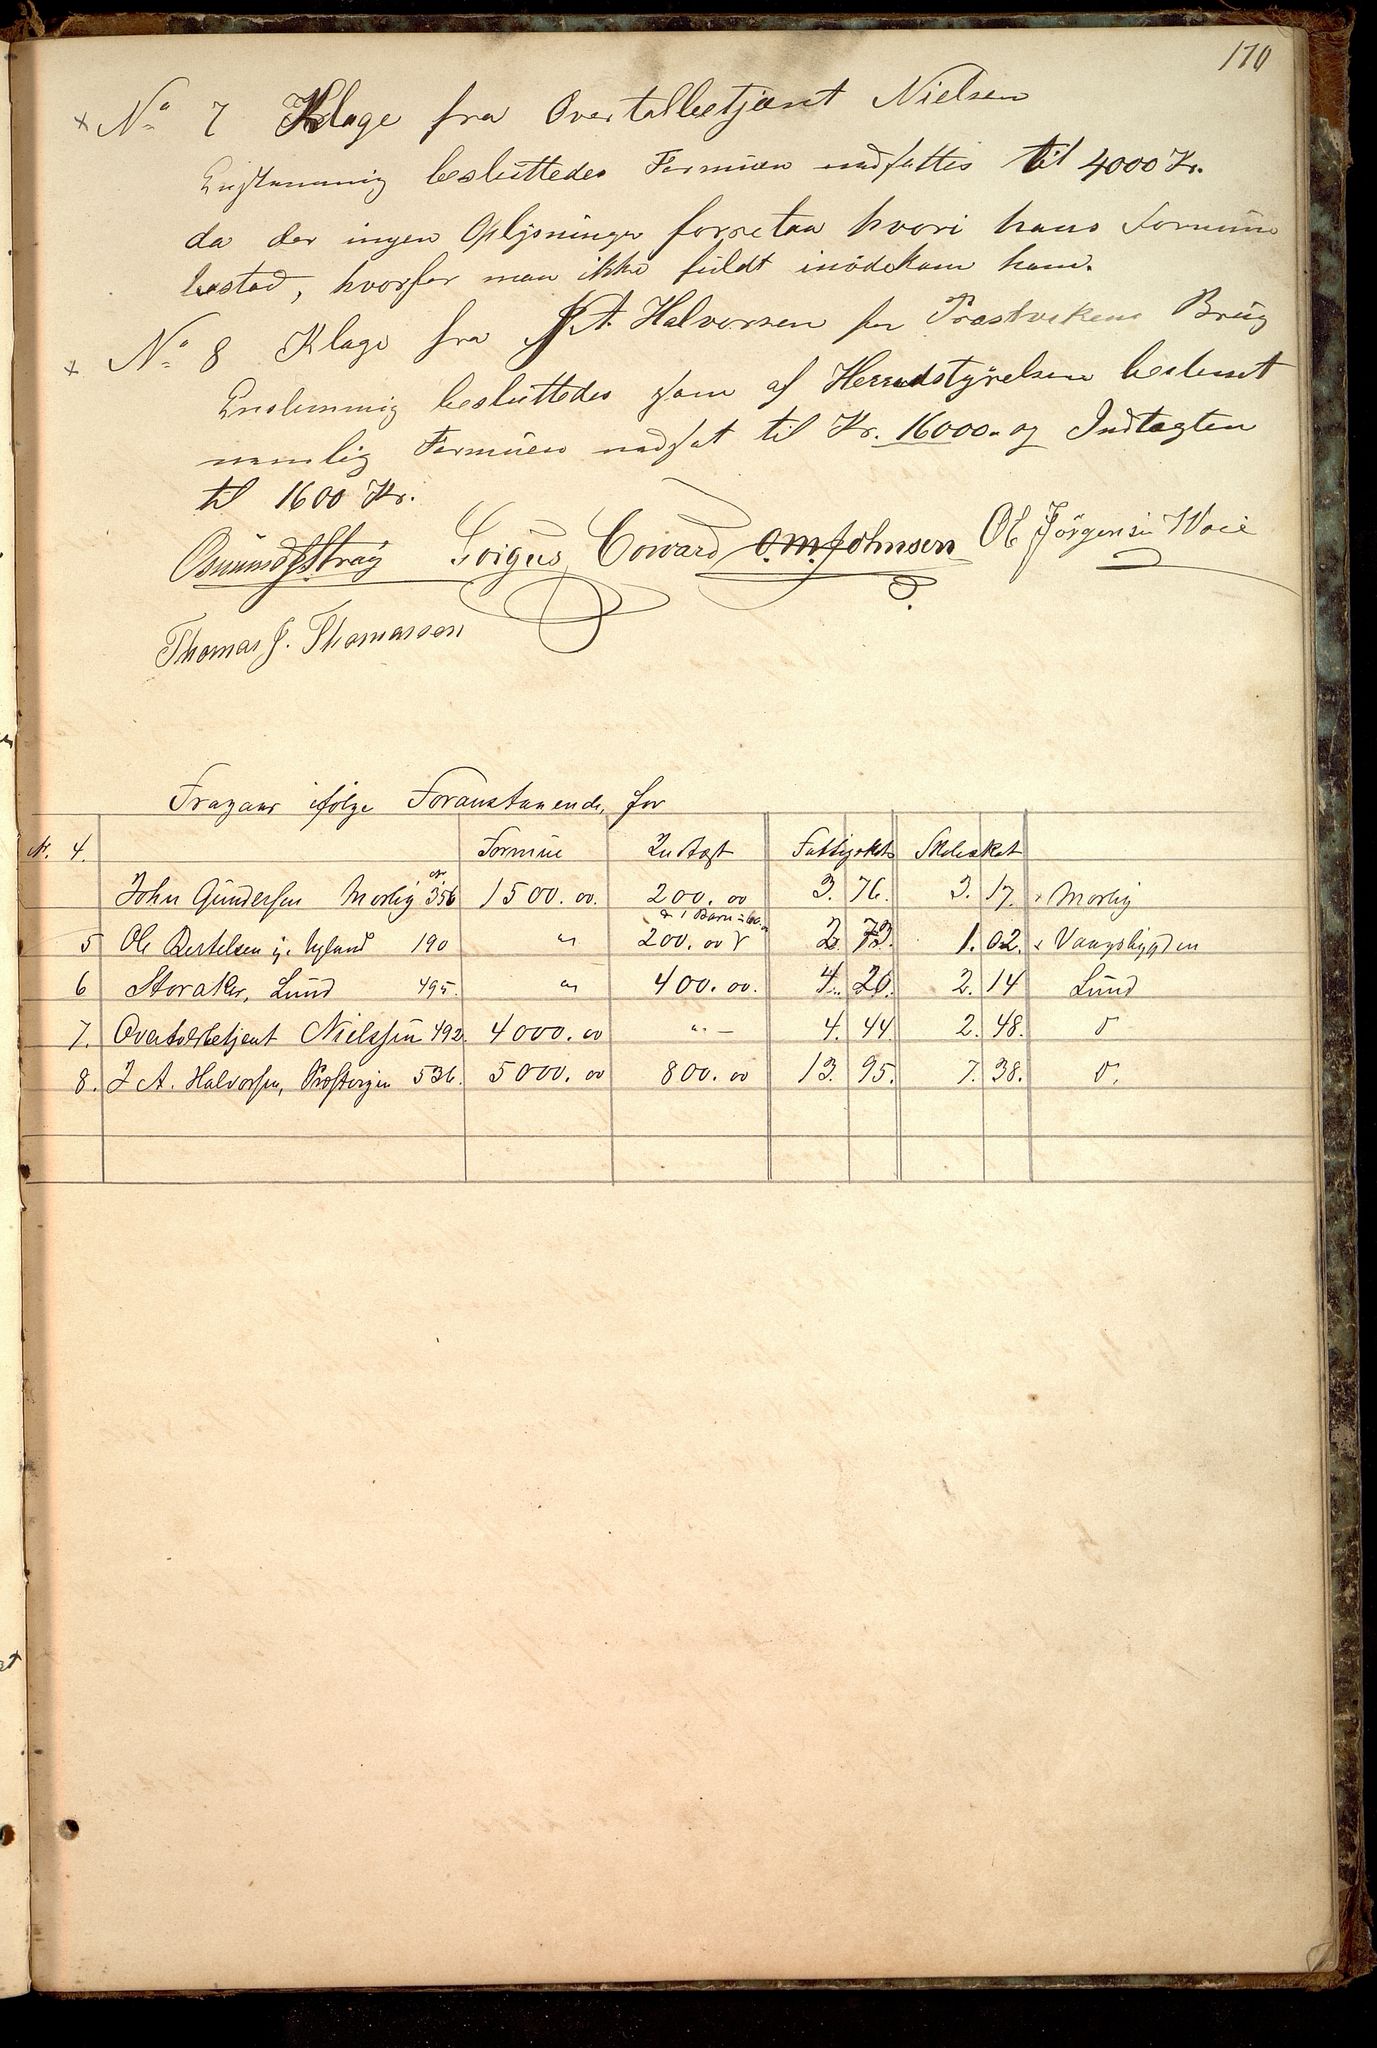 170
× No 7 Klage fra Overtolbetjent Nielsen
Enstemmig besluttedes Formuen nedsattes til 4000 Kr.
da der ingen Oplysninger forretaa hvori hans Formue
bestod, hvorfor man ikke fuldt imødekom ham.
× No 8 Klage fra J A. Halvorsen for Præstvikens Brug
Enstemmig besluttedes som af Herredstyrelsen bestemt
nemlig Formuen nedsat til Kr. 16000.- og Indtægten
til 1600 Kr.
Osmund J Stray Coward O.M. Johnsen Ol Jörgensen Woie
Thomas J. Thomassen
Fragaar ifölge Foranstaaende, for
Nr. 4. Formue Indtægt Fattigskat Skoleskat
John Gundersen Moslig nr 356 1500.00. 200.00 3. 76. 3. 17. Moslig
5 Ole Bertelsen y. Ugland 190 " 200.00 & 1 Barn 2. 73. 1. 02. Vaagsbygden
6 Storaker, Lund 495. " 400.00. 4. 20. 2. 14 Lund
7. Overtolbetjent Nielssen 492. 4000.00 "- 4. 44. 2. 48. d
8. J A. Halvorsen, Prostvigen 536. 5000.00 800.00 13. 95. 7. 38. d.